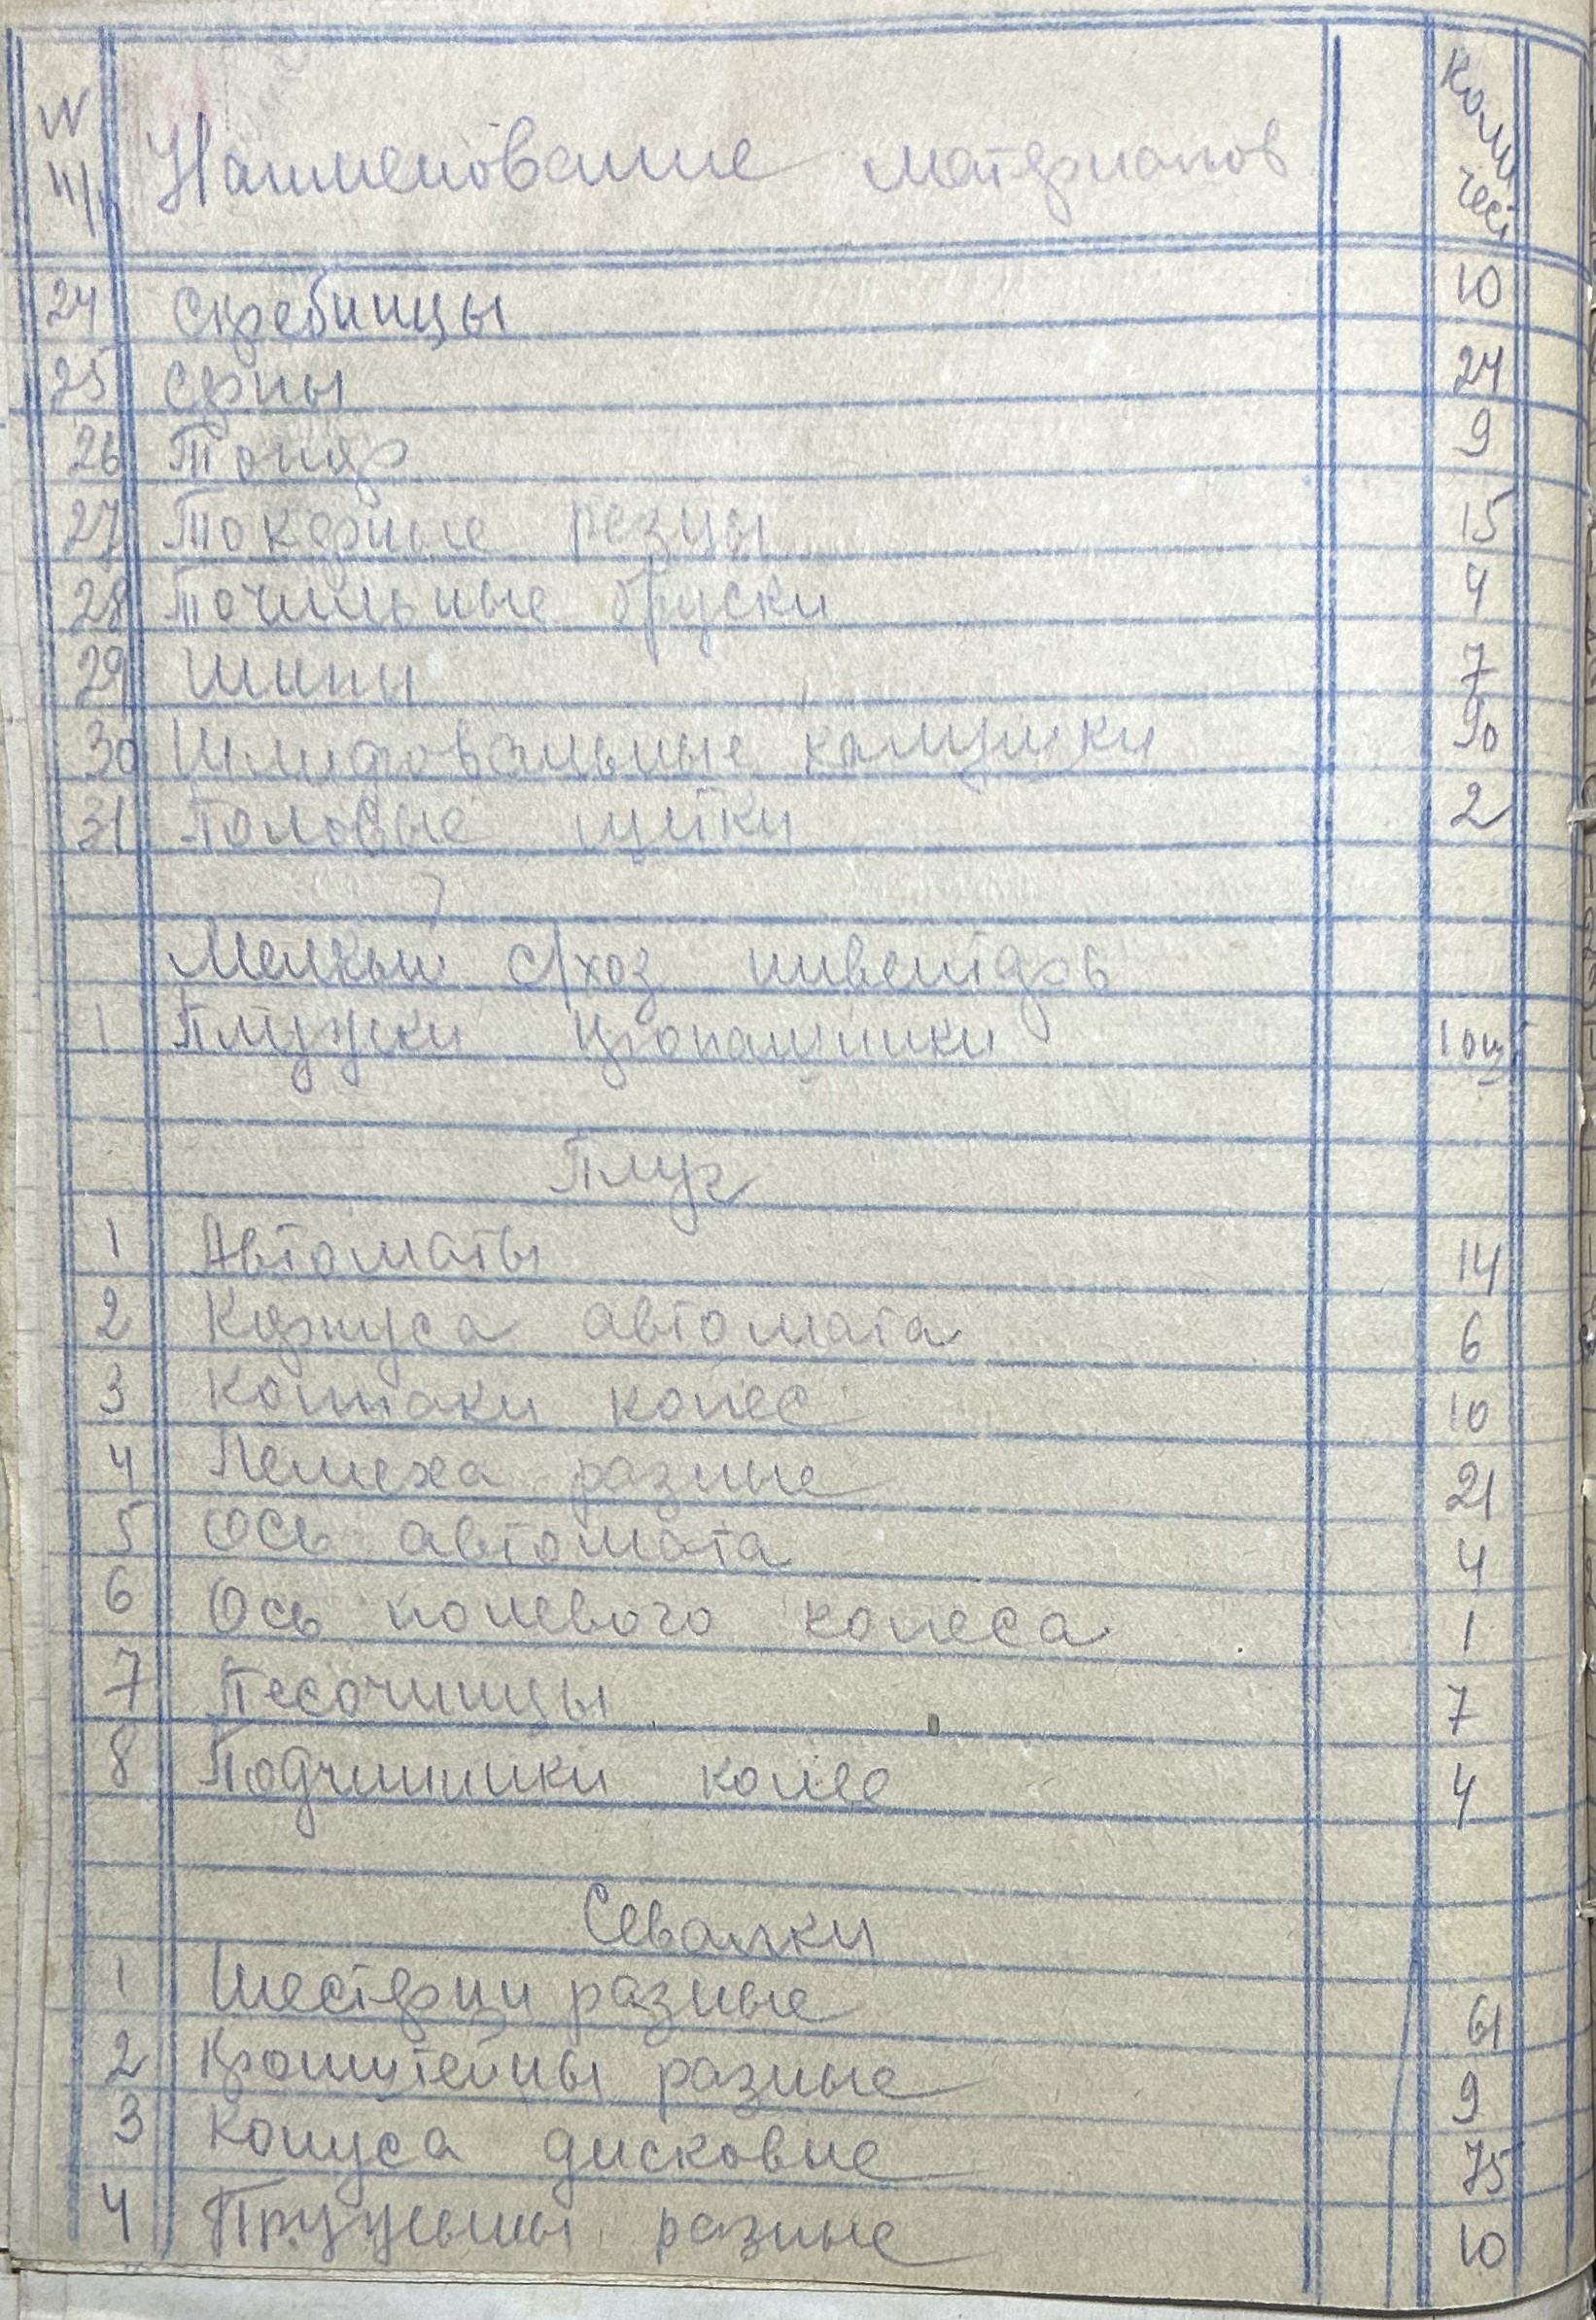 N п/п Наименование материалов Коли чест
24 Скребницы 10
25 Серпы 24
26 Топор 9
27 Токерные резцы 15
28 Точильные бруски 4
29 Шипы 7
30 Шлифовальные камушки 90
31 Половые щетки 2
Мелкый с/хоз инвентарь
1 Плужки 10ш
Плуг
1 Автоматы 14
2 Корпуса автомата 6
3 Колпаки колес 10
4 Лемеха разные 21
5 Ось автомата 4
6 Ось полевого колеса 1
7 Песочницы 7
8 Подчипники колес 4
Севалки
1 Шестерни разные 61
2 Кронштейны разные 9
3 Конуса дисковые 75
4 Пружины разные 10